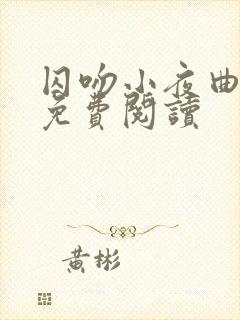 囚吻小夜曲
免費閱讀
黃彬